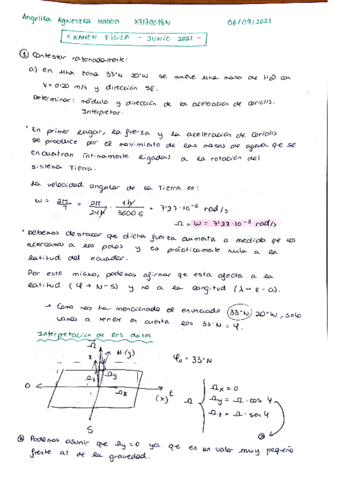 Angelika Agnieszka
06/09/2021
EXAMEN FÍSICA - JUNIO 2021 -
① Contestar razonadamente:
a) En una zona 33°N 20°W se mueve una masa de H2O con
v = 0'20 m/s y dirección SE.
Determinar: módulo y dirección de la aceleración de coriolis.
Interpretar.
* En primer lugar, la fuerza y la aceleración de coriolis
se produce por el movimiento de las masas de agua que se
encuentran íntimamente ligadas a la rotación del
sistema Tierra.
La velocidad angular de la Tierra es:
w = 2π/T = 2π/24h · 1h/3600 s = 7'27·10⁻⁵ rad/s
Ω = w = 7'27·10⁻⁵ rad/s
* Debemos destacar que dicha fuerza aumenta a medida que nos
acercamos a los polos y es prácticamente nula a la
latitud del ecuador.
Por esto mismo, podemos afirmar que esta afecta a la
latitud (φ → N-S) y no a la longitud (λ → E-O).
→ Como nos ha mencionado el enunciado 33°N 20°W, solo
vamos a tener en cuenta los 33°N = φ.
Interpretación de los datos
Ω
N (y)
φ₀ = 33°N
Ωz
Ωy
O
Ωx
E
(x)
S
Ω
Ωx = 0
Ωy = Ω · cos φ
Ωz = Ω · sen φ
Podemos asumir que Ωy = 0 ya que es un valor muy pequeño
frente al de la gravedad.